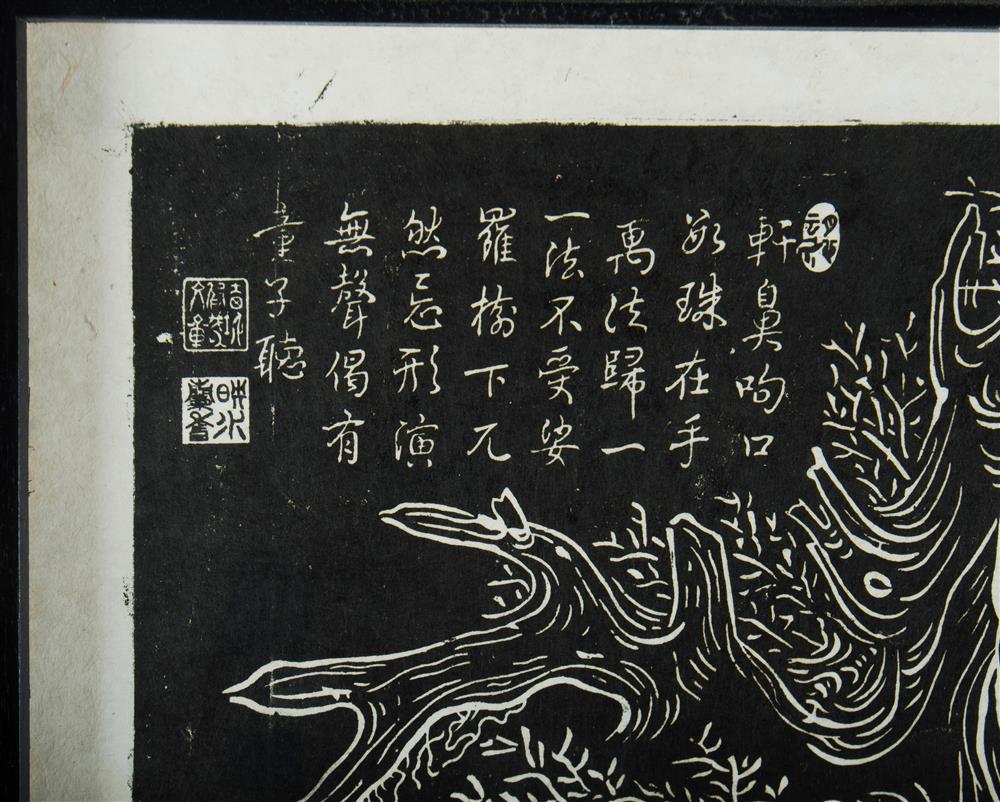 軒鼻呴口
數珠在手
萬法歸一
一法不受娑
羅樹下兀
然忘形演
無聲偈有
童子聽